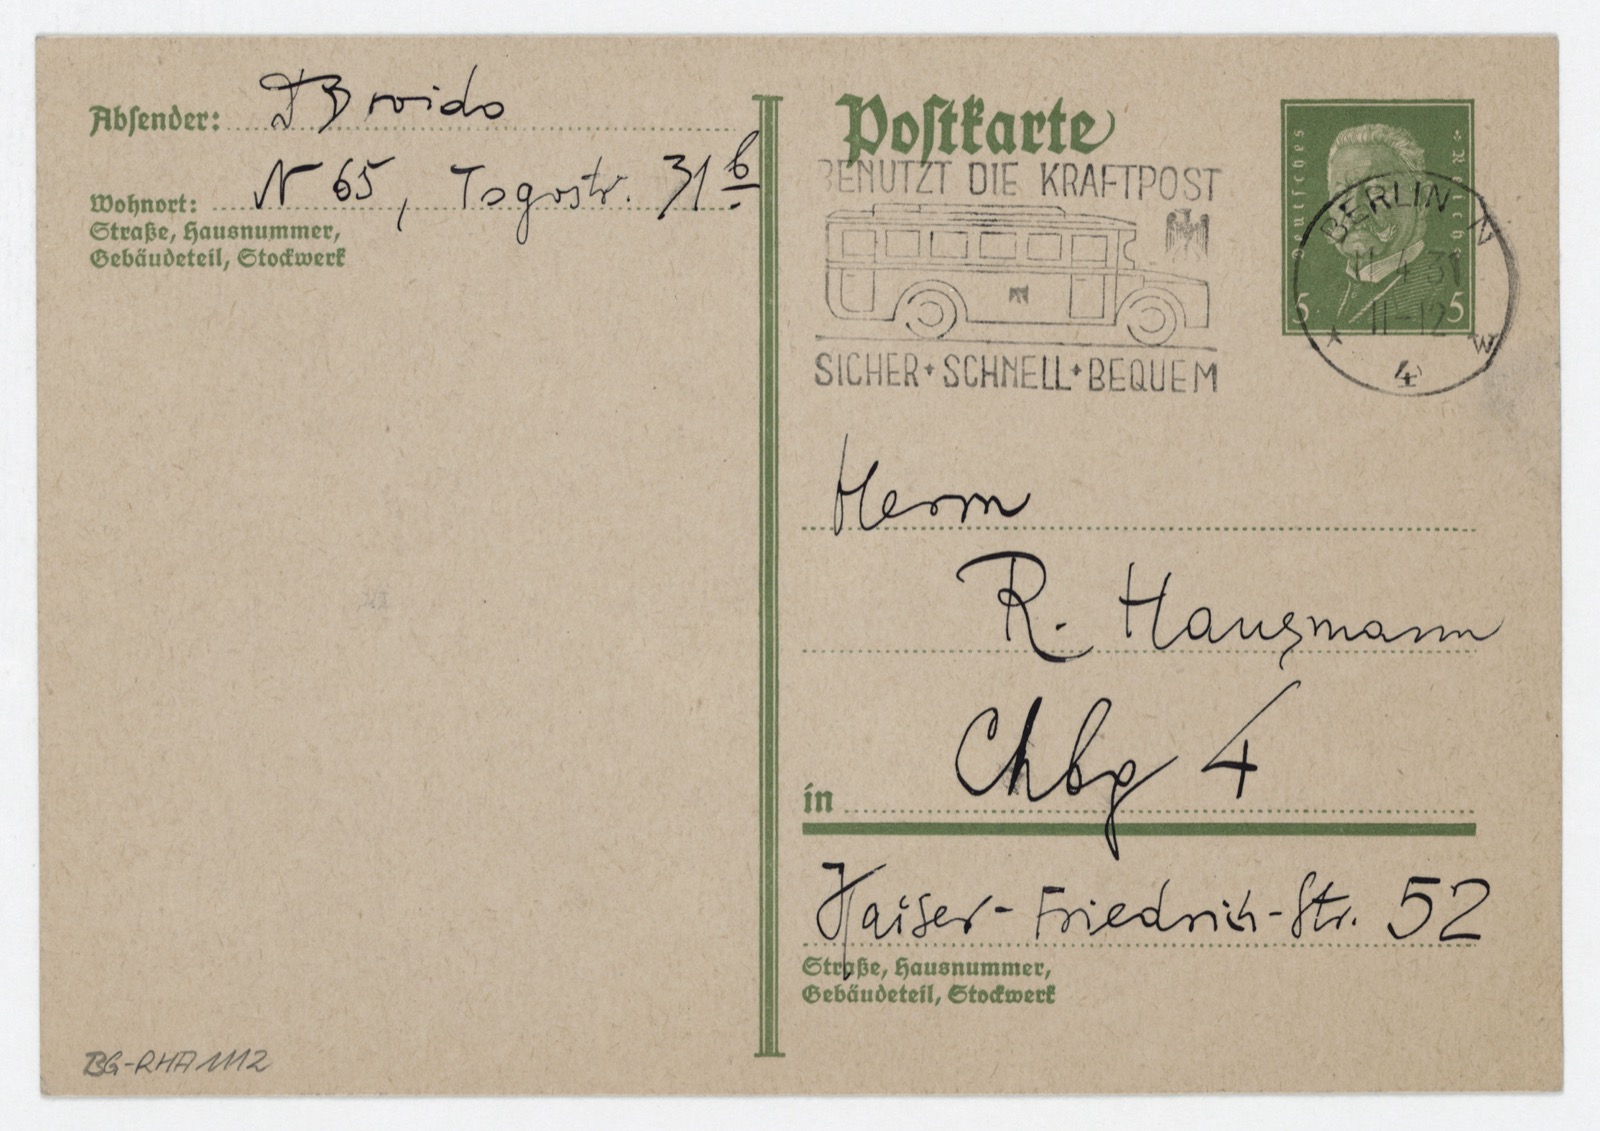 Absender: D Broido
Wohnort: N 65, Togostr. 31 b
Straße, Hausnummer,
Gebäudeteil, Stockwerk
Postkarte
BENUTZT DIE KRAFTPOST
SICHER + SCHNELL + BEQUEM
Deutsches Reich
5 5
BERLIN N
11.4.31
11-12
* 4 W
Herrn
R. Hausmann
in Chbg 4
Kaiser-Friedrich-Str. 52
Straße, Hausnummer,
Gebäudeteil, Stockwerk
BG-RHA 1112